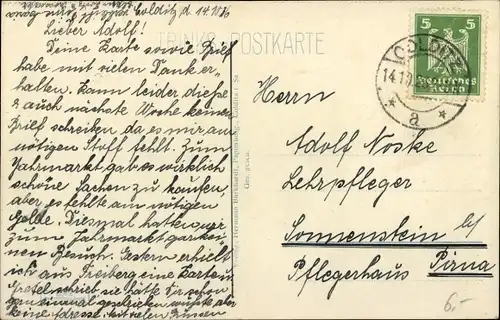 Colditz d. 14.
Lieber Adolf!
Deine Karte sowie Brief
habe mit vielen Dank er-
halten. Kann leider diese
& auch nächste Woche keinen
Brief schreiben da es mir am
nötigen Stoff fehlt. Zum
Jahrmarkt gab es wirklich
schöne Sachen zu kaufen,
aber es fehlte am nötigen
Gelde. Diesmal hatten wir
zum Jahrmarkt gar kei-
nen Besuch. Gestern erhielt
ich aus Freiberg eine Karte
schrieb sie hätte Dir schon
einmal geschrieben
keine Adresse. Mit vielen Grüssen
POSTKARTE
5 5
Deutsches
Reich
COLDITZ
14.11
* a *
Herrn
Adolf Noske
Lehrpfleger
Sonnenstein b/
Pflegerhaus Pirna
Ges. gesch.
6,-